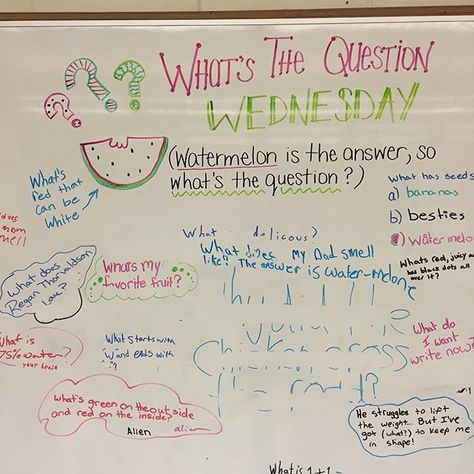 What's The Question
WEDNESDAY
(Watermelon is the answer, so
what's the question?)
What's
red that
can be
White
What has seeds
a) bananas
b) besties
c) Watermelon
What's red, juicy and
has black dots all
over it?
mell
What does
Regan
love?
What's my
favorite fruit?
What delicous?
What does my Dad smell
like? The answer is water-melone
What is
75% water?
your brain
What starts with
W and ends with
?
Chicken cross
the road?
What do
I want
write now?
what's green on the outside
and red on the inside?
Alien alien
He struggles to lift
the weight... But I've
got (what?) to keep me
in shape!
What is 1+1 -